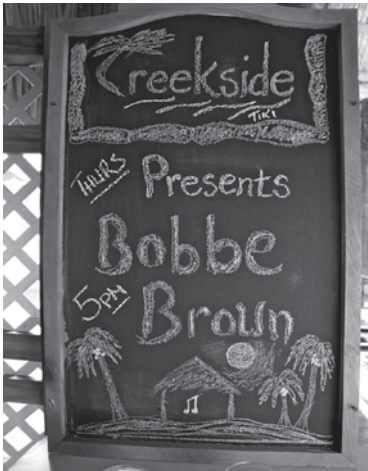 Creekside
Tiki
Thurs Presents
Bobbe
5pm Broun